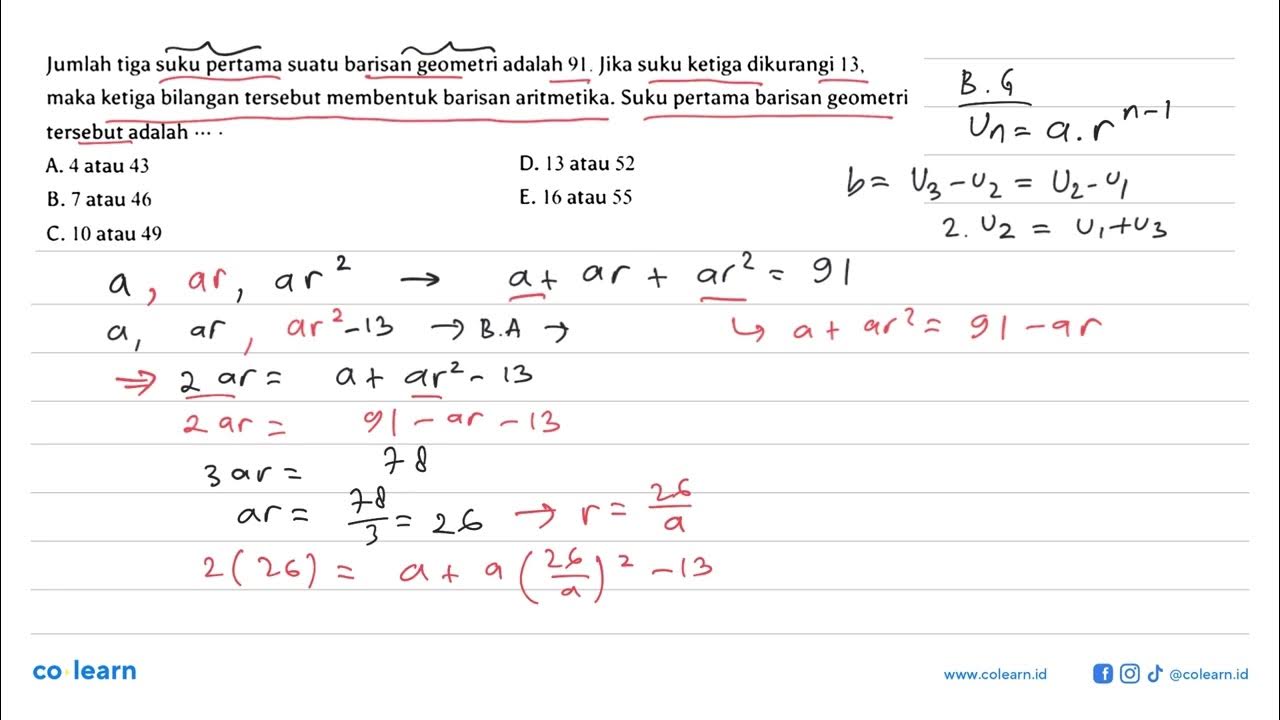 Jumlah tiga suku pertama suatu barisan geometri adalah 91. Jika suku ketiga dikurangi 13,
maka ketiga bilangan tersebut membentuk barisan aritmetika. Suku pertama barisan geometri
tersebut adalah ... .
A. 4 atau 43
B. 7 atau 46
C. 10 atau 49
D. 13 atau 52
E. 16 atau 55
B.G
Un = a.r^(n-1)
b = U₃ - U₂ = U₂ - U₁
2. U₂ = U₁ + U₃
a, ar, ar² → a + ar + ar² = 91
a, ar, ar² - 13 → B.A →
↳ a + ar² = 91 - ar
⇒ 2 ar = a + ar² - 13
2 ar = 91 - ar - 13
3 ar = 78
ar = 78/3 = 26 → r = 26/a
2(26) = a + a(26/a)² - 13
co learn
www.colearn.id
@colearn.id